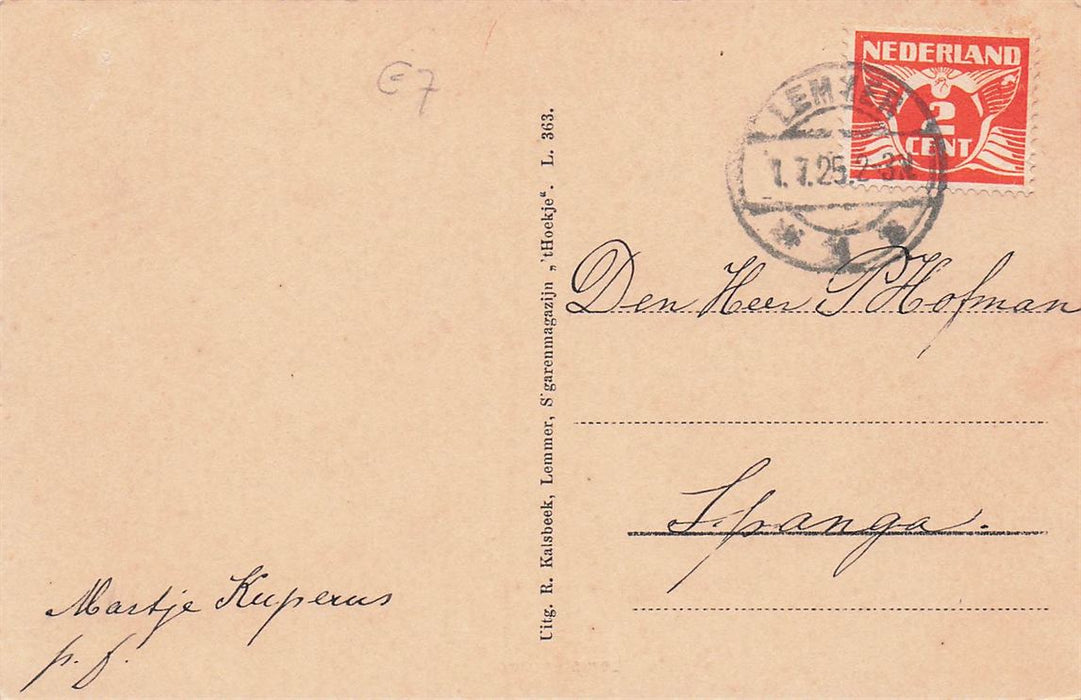 €7
NEDERLAND
2
CENT
LEMMER
1.7.25.2-3N
Den Heer P Hofman
Spanga.
Martje Kuperus
p. f.
Uitg. R. Kalsbeek, Lemmer, S'garenmagazijn „'tHoekje“. L. 363.